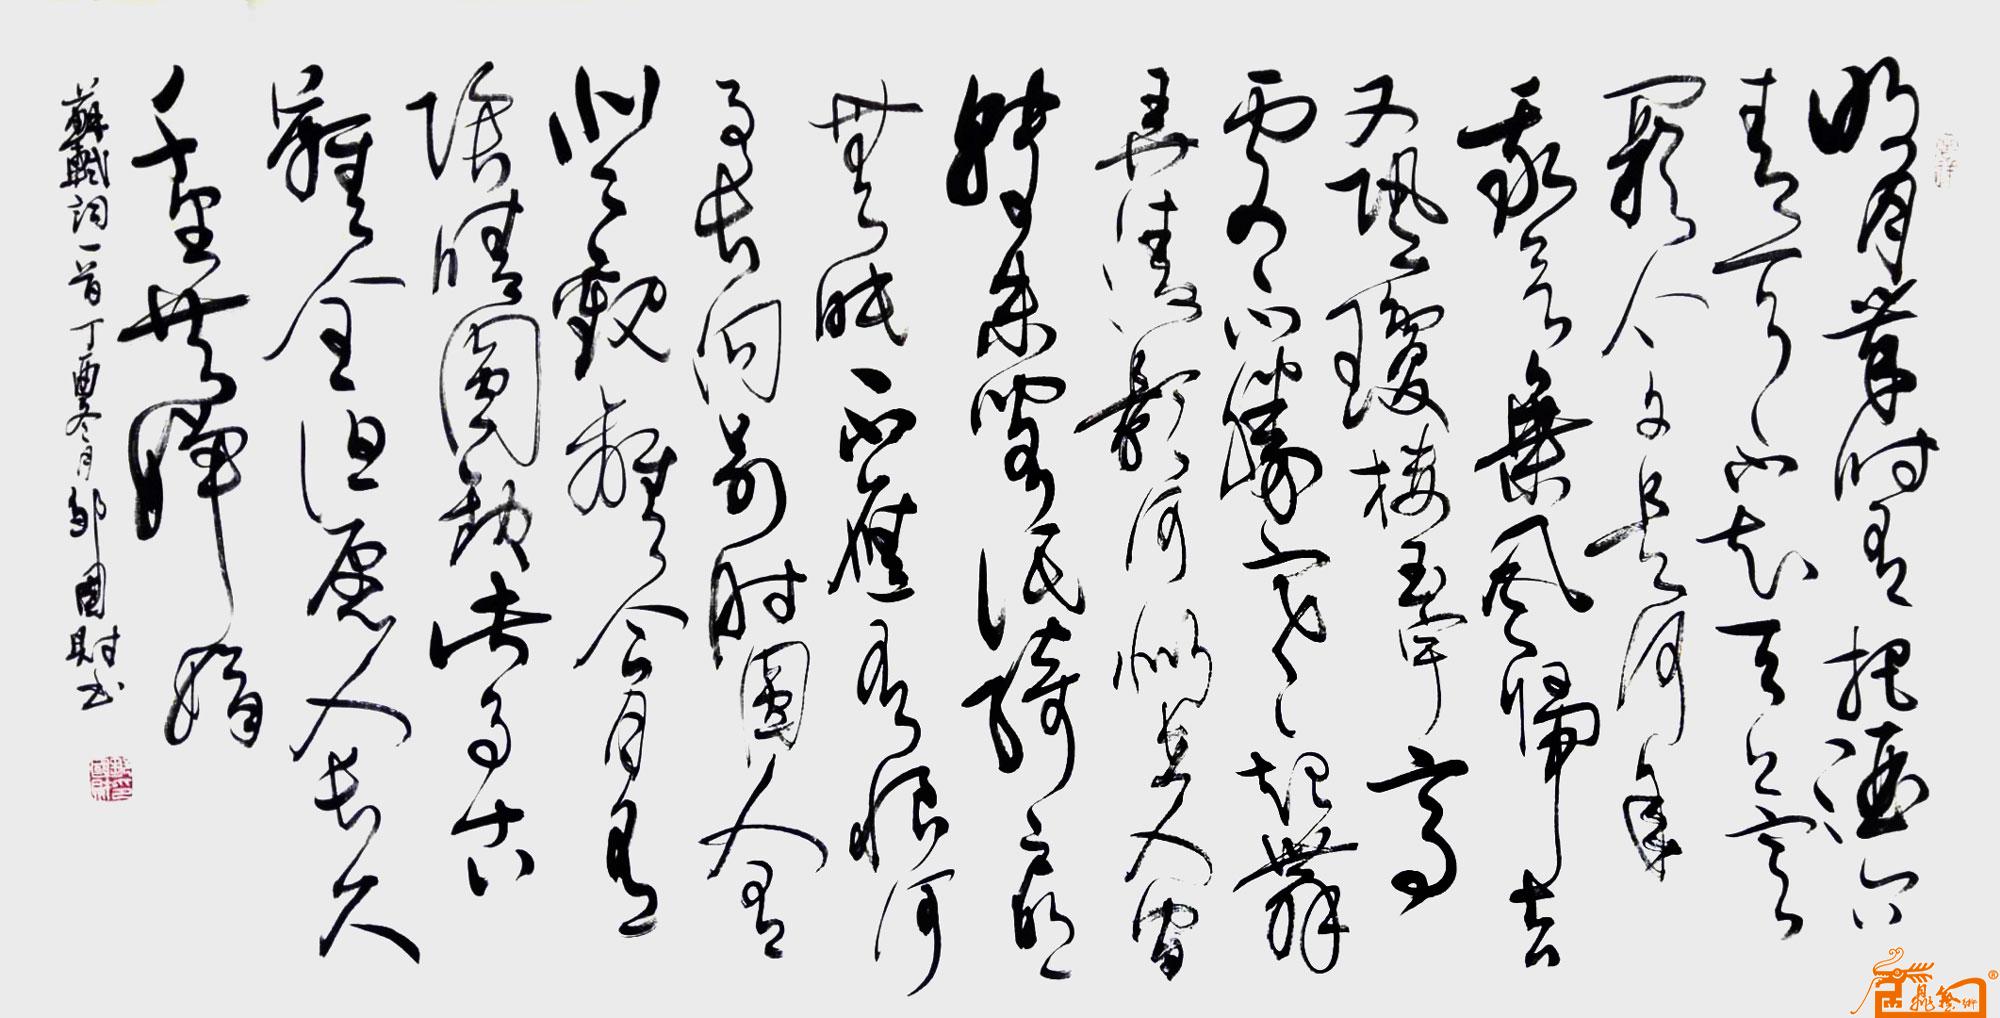 明月幾时有把酒问
青天不知天上宫
阙今夕是何年
我欲乘风歸去
又恐瓊楼玉宇高
處不勝寒起舞
弄清影何似在人间
轉朱阁低绮户
無眠不應有恨何
事长向别时圆人有
悲歡離合月有
阴晴圆缺此事古
難全但愿人长久
千里共婵娟
蘇軾詞一首丁酉冬月邹國財书